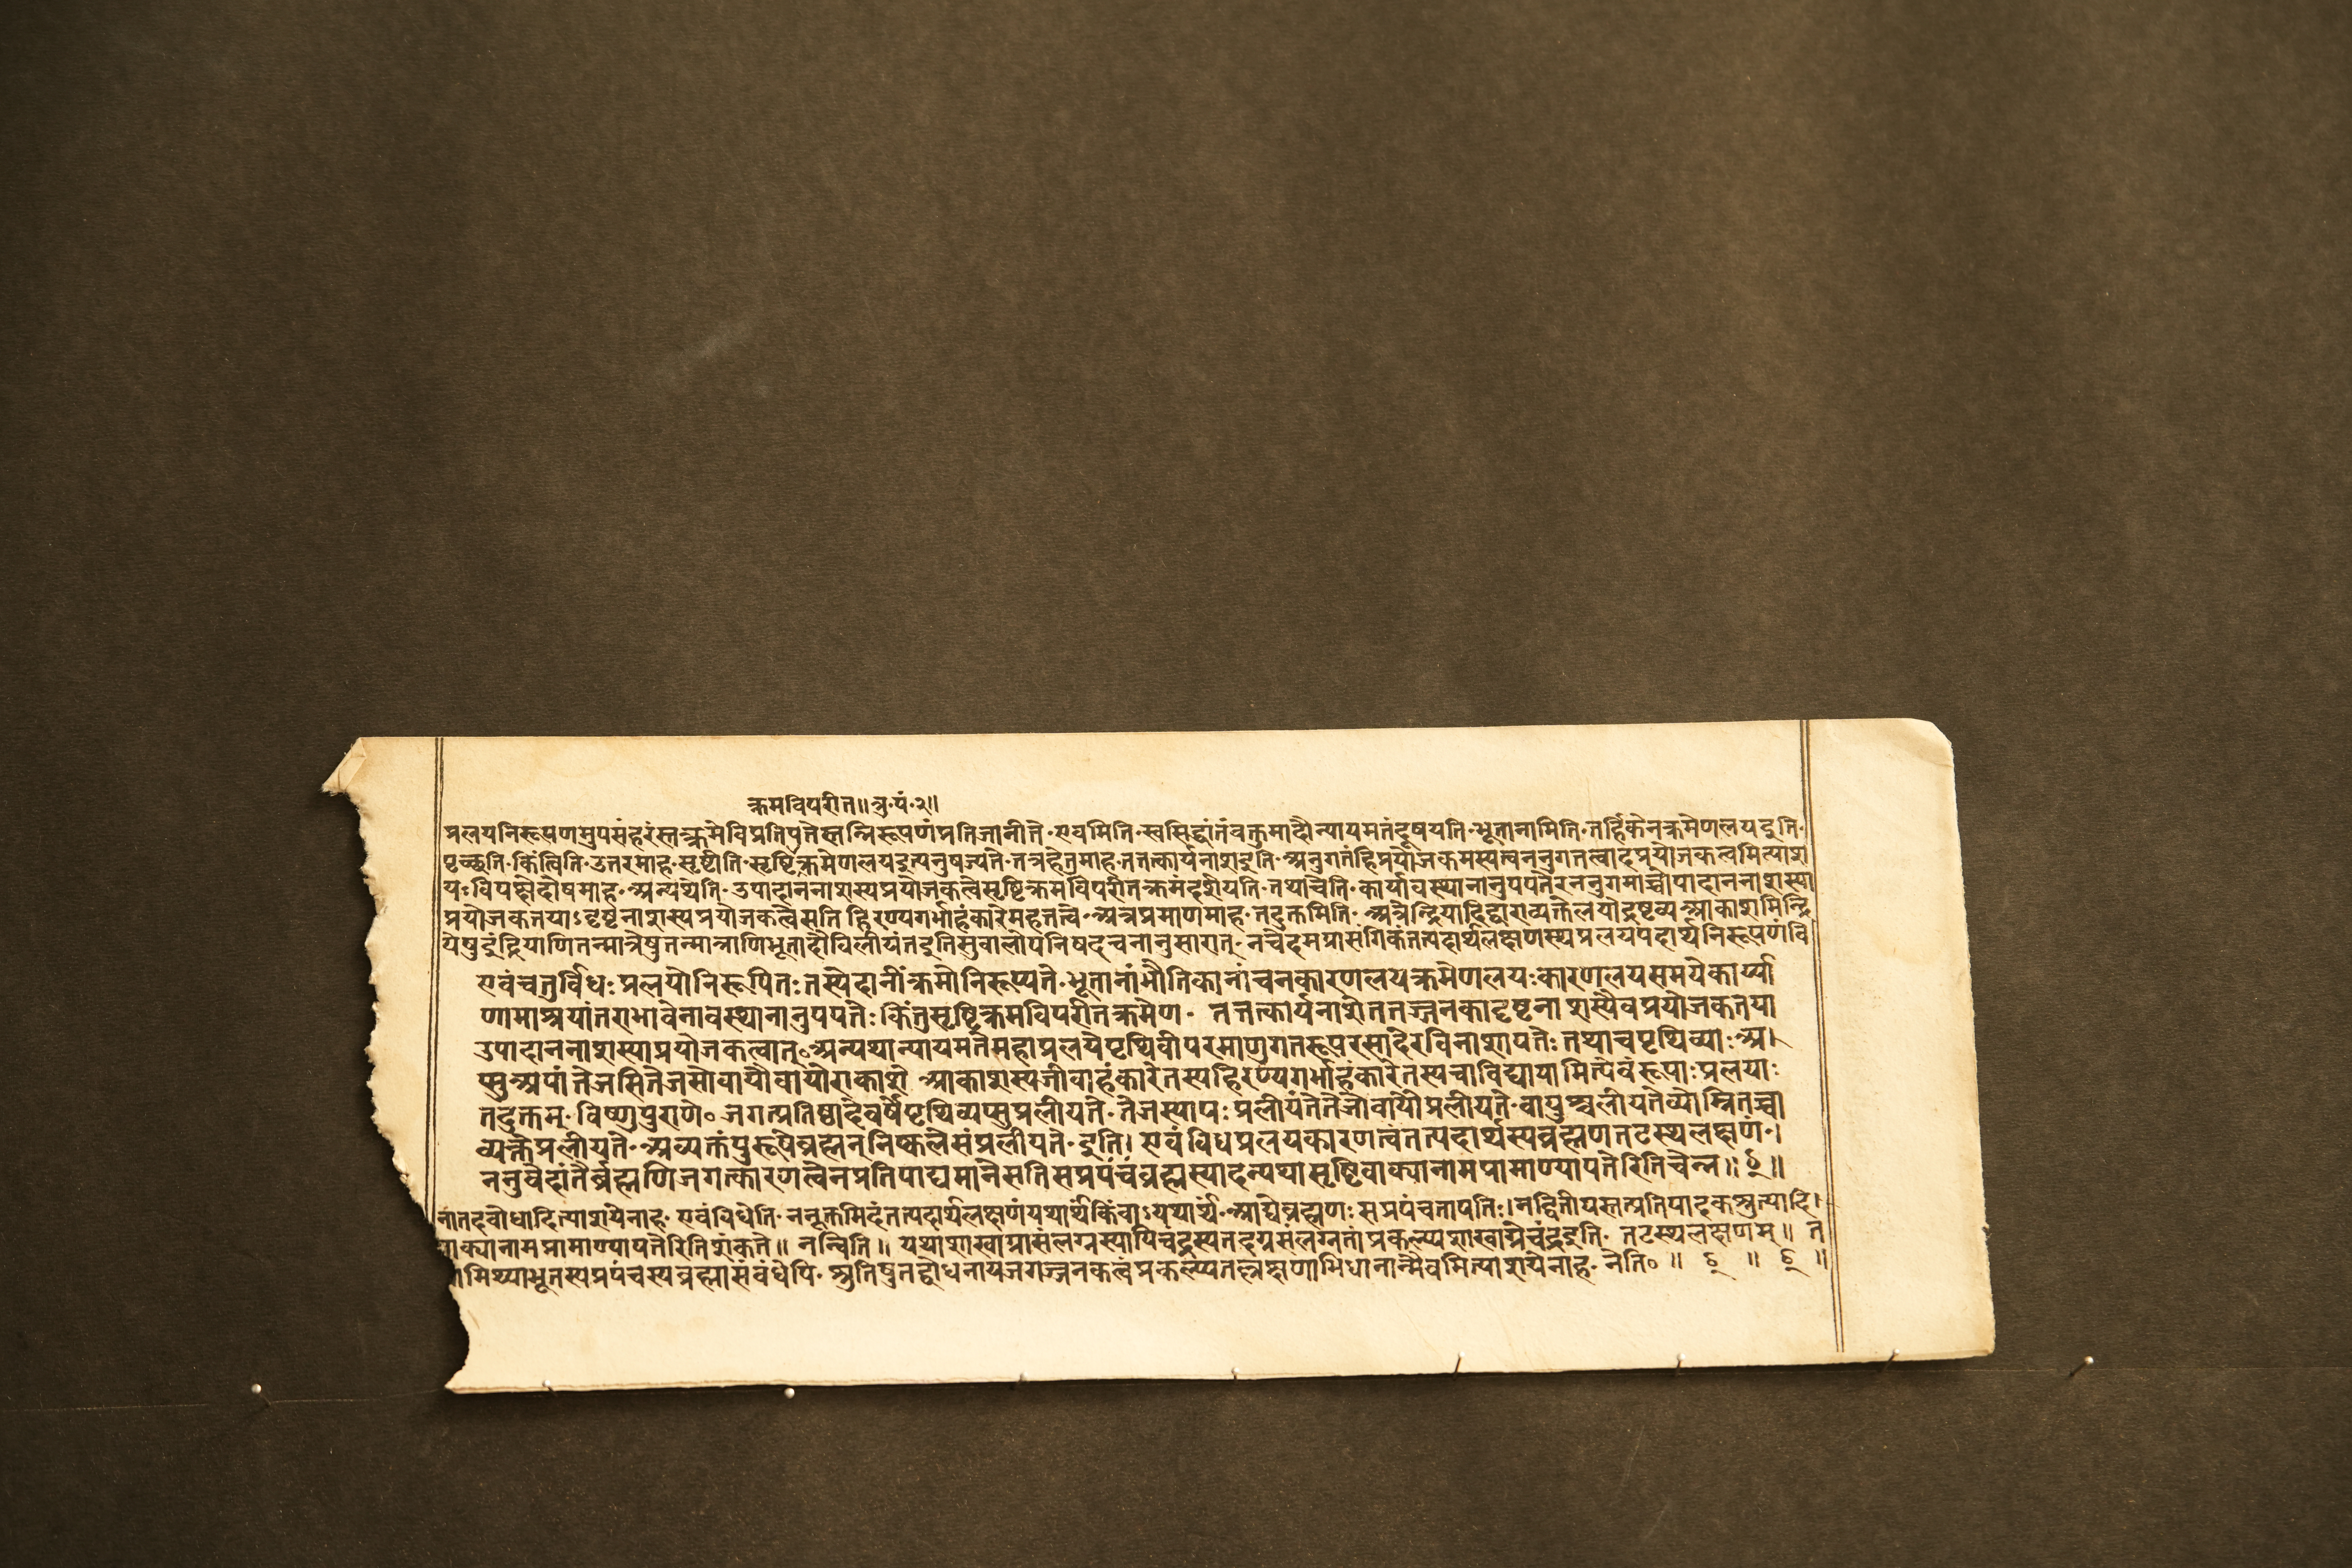 क्रमविपरीत॥त्रु॰पं॰२॥
प्रलयनिरूपणमुपसंहरंस्तत्क्रमेविप्रतिपत्तेस्तन्निरूपणंप्रतिजानीते॰एवमिति॰स्वसिद्धांतंवक्तुमादौन्यायमतंदूषयति॰भूतानामिति॰तर्हिकेनक्रमेणलयइति॰
पृच्छति॰किंत्विति॰उत्तरमाह॰सृष्टीति॰सृष्टिक्रमेणलयइत्यनुषज्यते॰तत्रहेतुमाह॰तत्तत्कार्यनाशइति॰अनुगतंहिप्रयोजकमस्यत्वननुगतत्वादप्रयोजकत्वमित्याश
यःविपक्षेदोषमाह॰अन्यथेति॰उपादाननाशस्यप्रयोजकत्वेसृष्टिक्रमविपरीतक्रमंदर्शयति॰तथाचेति॰कार्यावस्थानानुपपत्तेरननुगमाच्चोपादाननाशस्या
प्रयोजकतयाऽदृष्टनाशस्यप्रयोजकत्वेसति हिरण्यगर्भाहंकारेमहत्तत्वे॰अत्रप्रमाणमाह॰तदुक्तमिति॰अत्रेन्द्रियादिद्वाराव्यक्तेलयोद्रष्टव्यआकाशमिन्द्रि
येषुइंद्रियाणितन्मात्रेषुतन्मात्राणिभूतादौविलीयंतइतिसुबालोपनिषद्वचनानुसारात्॰नचेदमप्रासंगिकंतत्पदार्थलक्षणस्थप्रलयपदार्थनिरूपणंवि
एवंचतुर्विधःप्रलयोनिरूपितःतस्येदानींक्रमोनिरूप्यते॰भूतानांभौतिकानांचनकारणलयक्रमेणलयःकारणलयसमयेकार्य्या
णामाश्रयांतराभावेनावस्थानानुपपत्तेःकिंतुसृष्टिक्रमविपरीतक्रमेण॰ तत्तत्कार्यनाशेतत्तज्जनकादृष्टनाशस्यैवप्रयोजकतया
उपादाननाशस्याप्रयोजकत्वात्॰अन्यथान्यायमतेमहाप्रलयेपृथिवीपरमाणुगतरूपरसादेरविनाशापत्तेःतथाचपृथिव्याःअ।
प्सुअपांतेजसितेजसोवायौवायोराकाशे आकाशस्यजीवाहंकारेतस्यहिरण्यगर्भाहंकारेतस्यचाविद्यायामित्येवंरूपाःप्रलयाः
तदुक्तम्॰विष्णुपुराणे॰जगत्प्रतिष्ठादेवर्षेपृथिव्यप्सुप्रलीयते॰तेजस्यापःप्रलीयंतेतेजोवायौप्रलीयते॰वायुश्चलीयतेव्योम्नितच्चा
व्यक्तेप्रलीयते॰अव्यक्तंपुरूषेब्रह्मन्निष्कलेसंप्रलीयते॰इति। एवंविधप्रलयकारणत्वंतत्पदार्थस्यब्रह्मणतटस्थलक्षणं॰।
ननुवेदांतैर्ब्रह्मणिजगत्कारणत्वेनप्रतिपाद्यमानेसतिसप्रपंचंब्रह्मस्यादन्यथासृष्टिवाक्यानामप्रामाण्यापत्तेरितिचेन्न॥ ॥
नातदवोधादित्याशयेनाह॰एवंविधेति॰ननूक्तमिदंतत्पदार्थलक्षणंयथार्थकिंवाऽयथार्थं॰आद्येब्रह्मणःसप्रपंचतापत्तिः।नद्वितीयस्तत्प्रतिपादकश्रुत्यादि।
वाक्यानामप्रामाण्यापत्तेरितिशंकते॥ नन्विति॥ यथाशाखाग्रासंलग्नस्यापिचंद्रस्यतदग्रसंलग्नतांप्रकल्प्यशाखाग्रेचंद्रइति॰ तटस्थलक्षणम्॥ त
मिथ्याभूतस्यप्रपंचस्यब्रह्मासंबंधेपि॰श्रुतिषुतद्बोधनायजगज्जनकत्वंप्रकल्प्यतल्लक्षणाभिधानान्मैवमित्याशयेनाह॰नेति॰॥ ॥ ॥